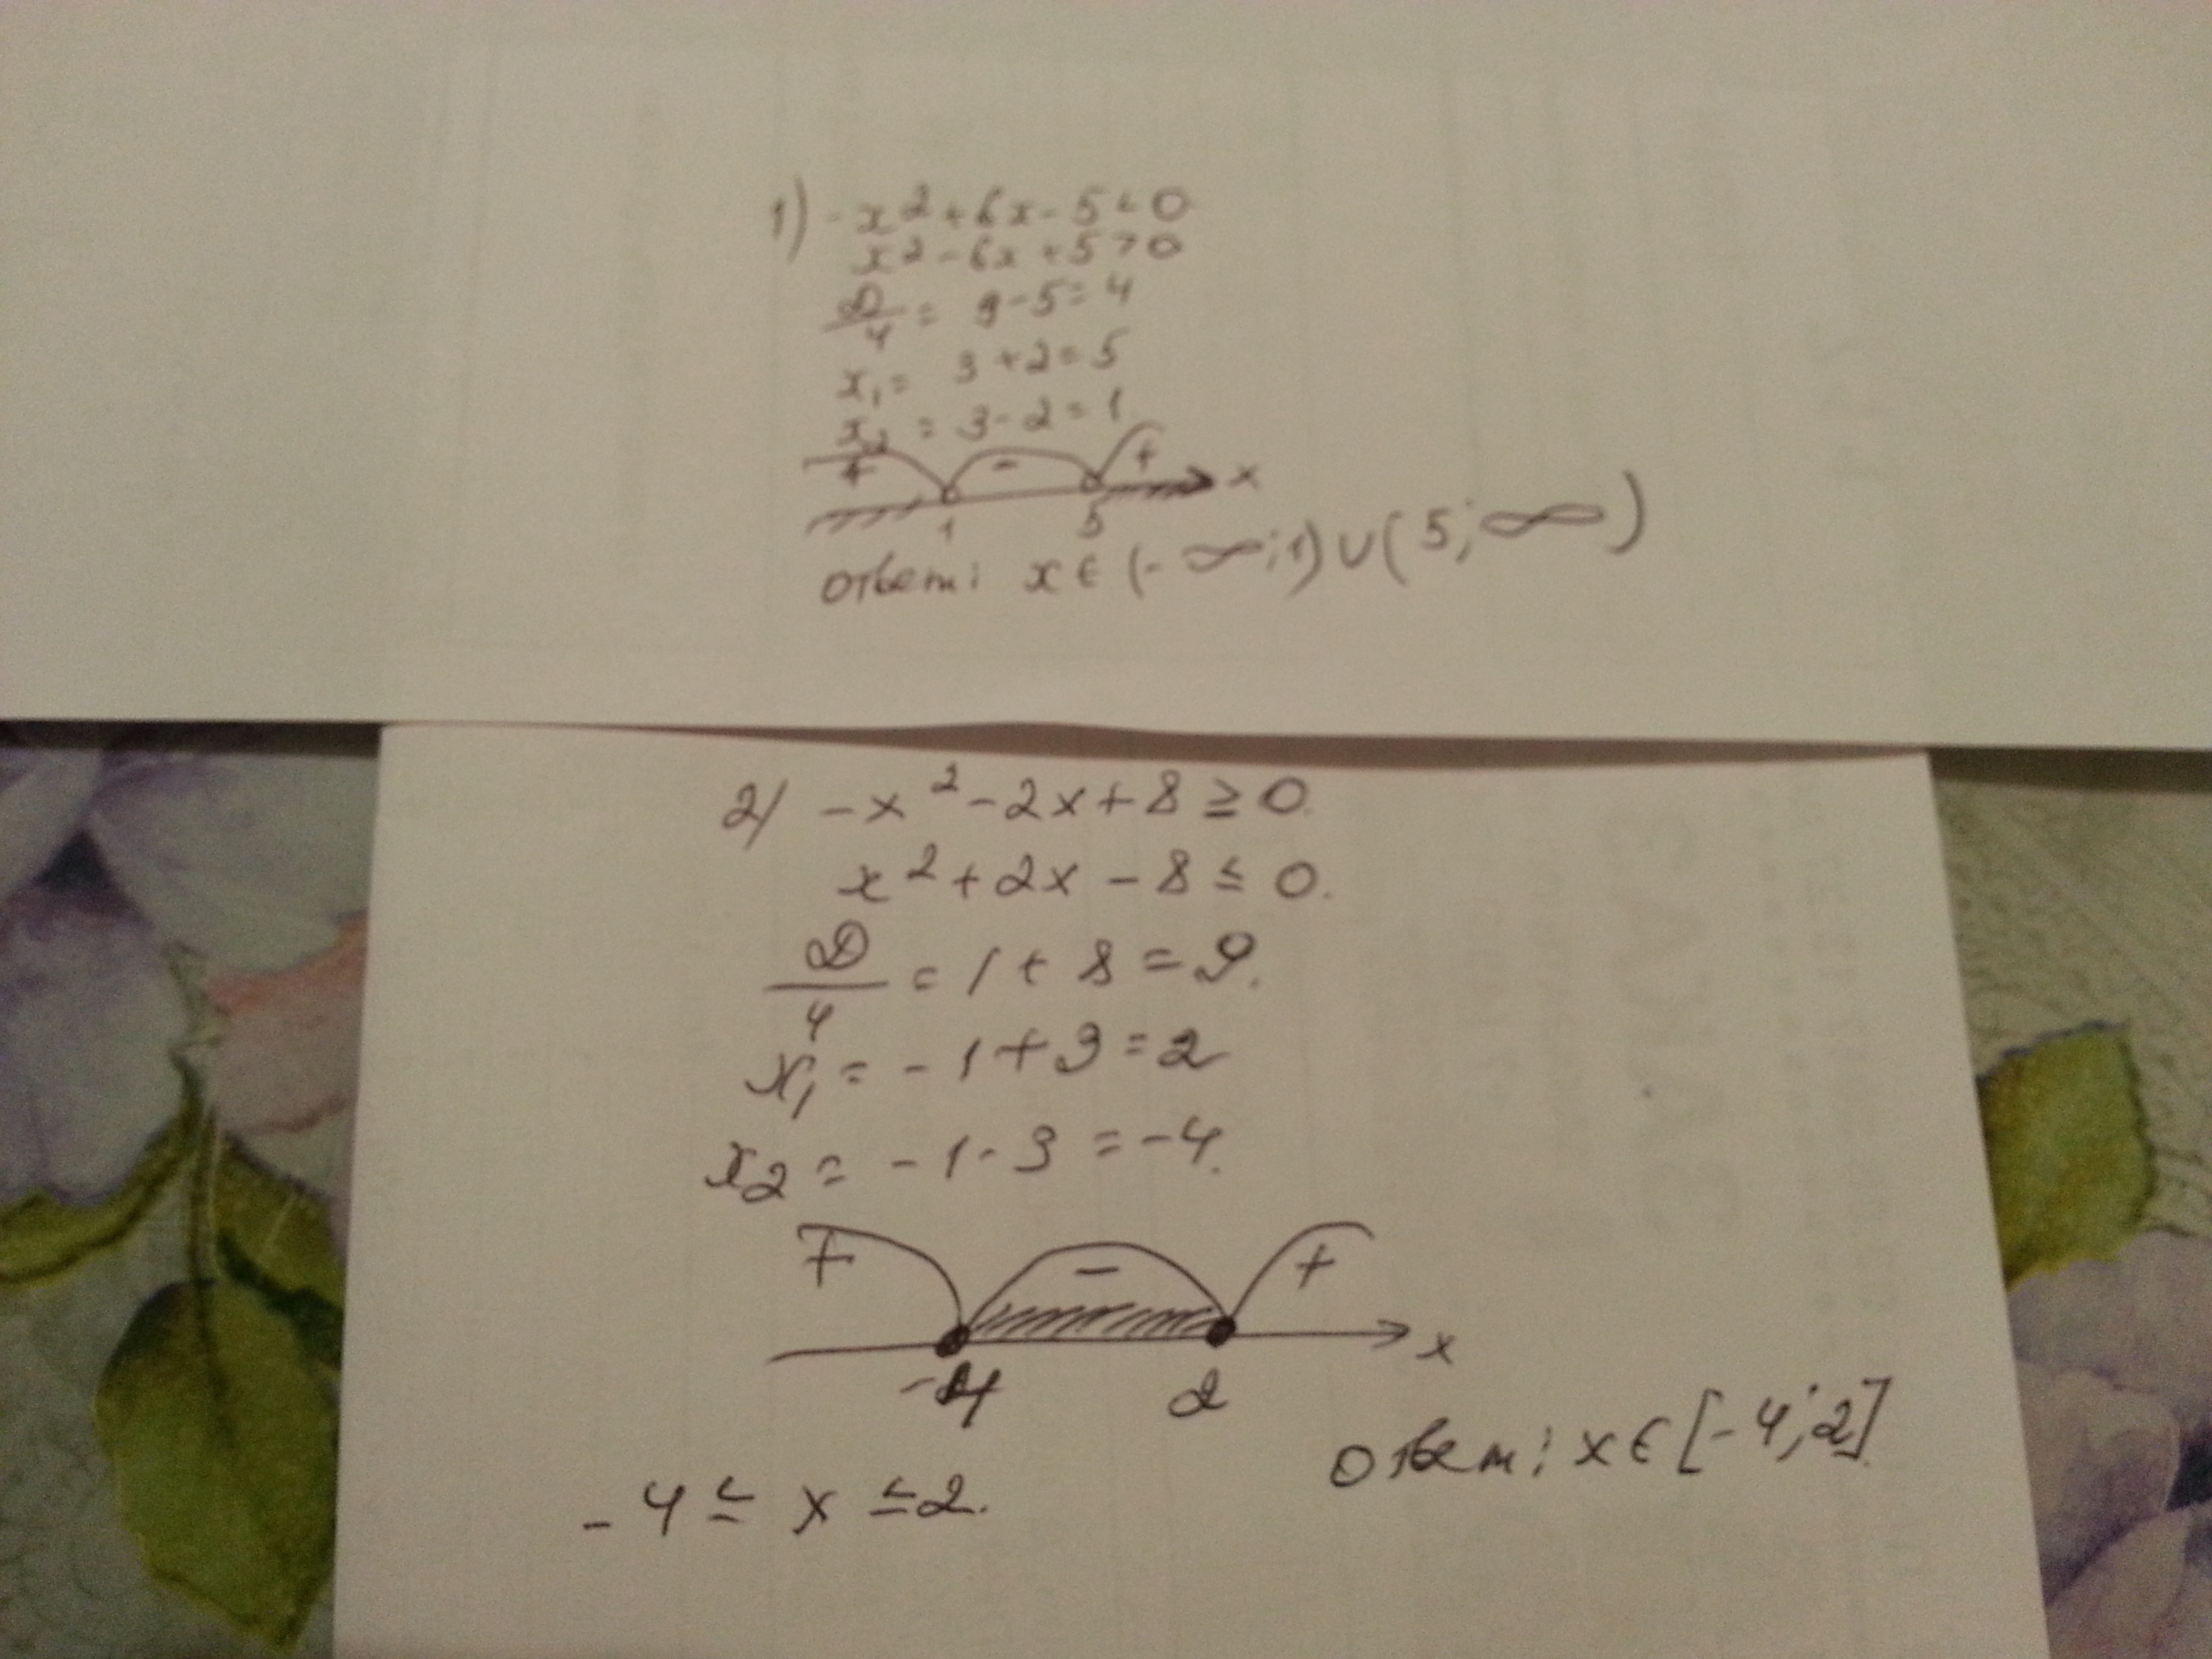 1) -x² + 6x - 5 < 0
x² - 6x + 5 > 0
D/4 = 9 - 5 = 4
x₁ = 3 + 2 = 5
x₂ = 3 - 2 = 1
+ - + x
1 5
Ответ: x ∈ (-∞; 1) ∪ (5; ∞)
2) -x² - 2x + 8 ≥ 0.
x² + 2x - 8 ≤ 0.
D/4 = 1 + 8 = 9.
x₁ = -1 + 3 = 2
x₂ = -1 - 3 = -4.
+ - +
x
-4 2
Ответ: x ∈ [-4; 2]
-4 ≤ x ≤ 2.